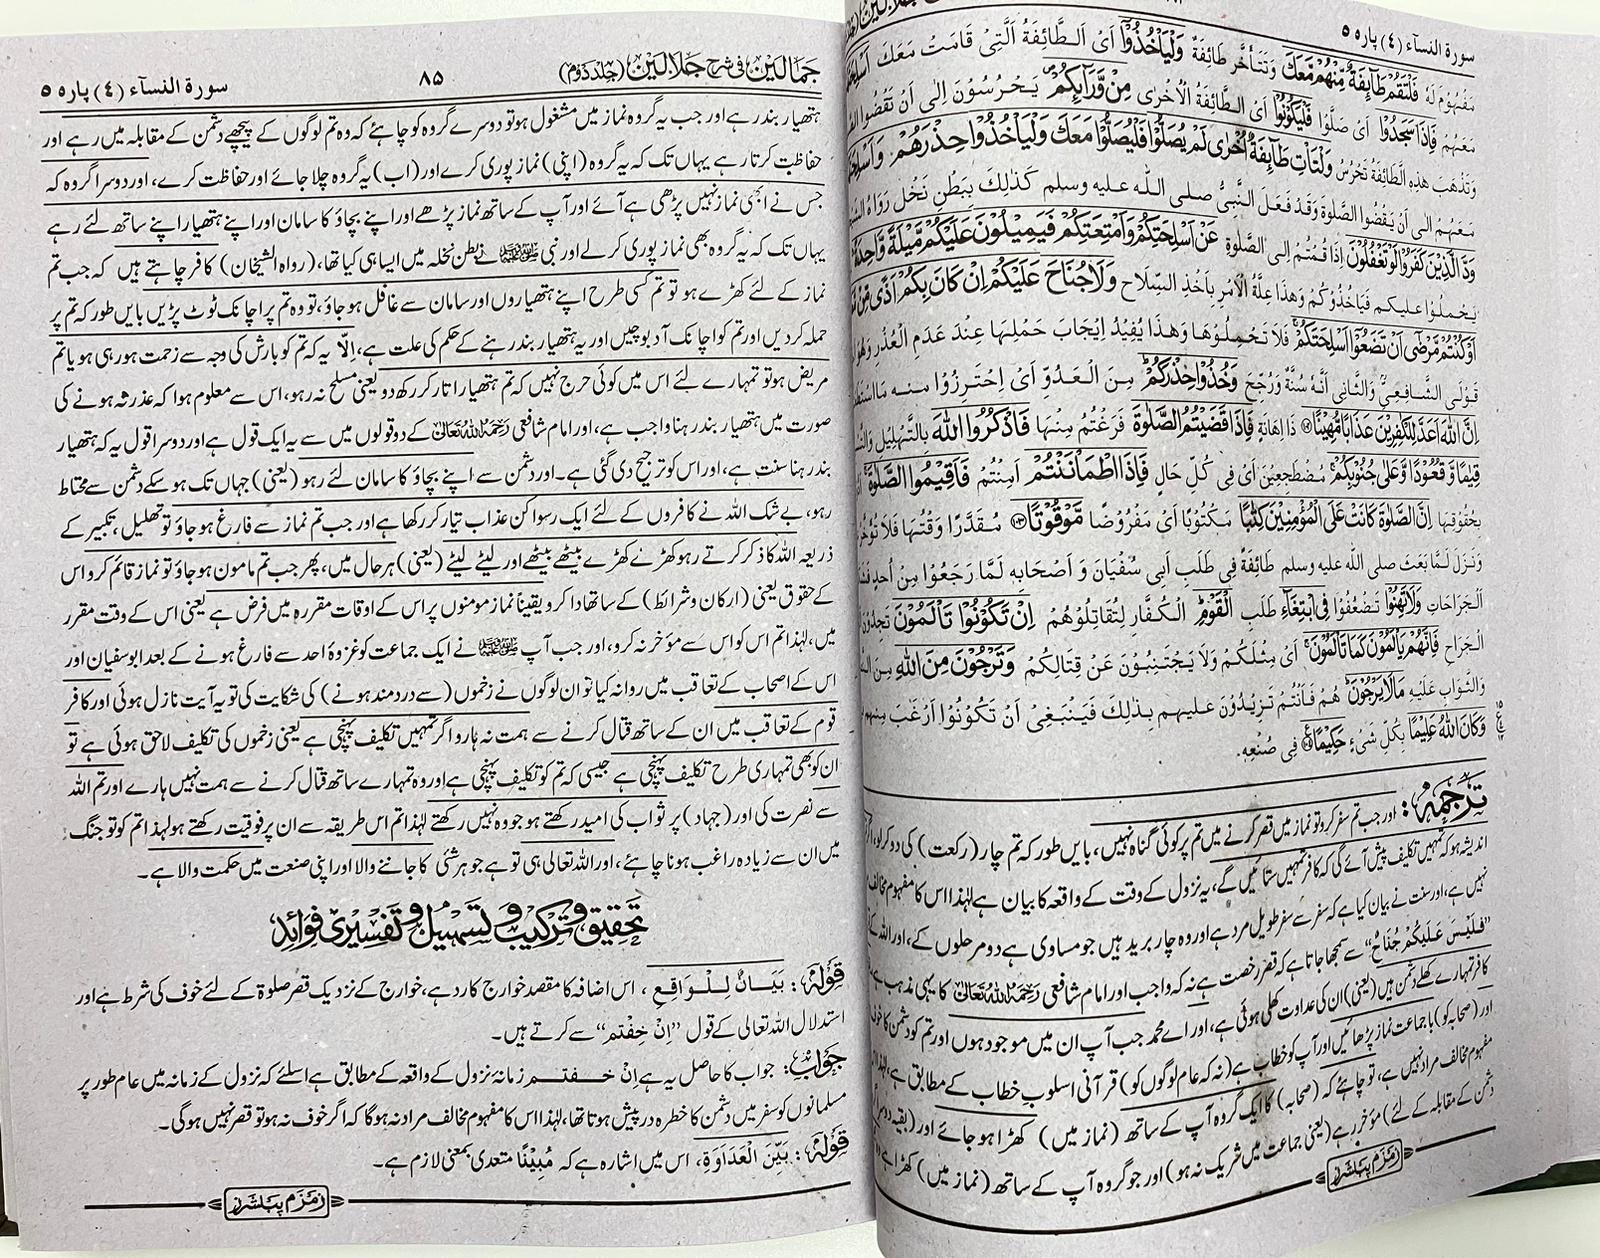 سورة النسآء (٤) پارہ ٥
مَفْهُوْمَ لَهُ فَلْتَقُمْ طَآئِفَةٌ مِّنْهُمْ مَّعَكَ وَتَتَأَخَّرُ طَائِفَةٌ وَلْيَاْخُذُوْٓا اَىْ الطَّائِفَةُ الَّتِىْ قَامَتْ مَعَكَ
مَعَهُمْ فَاِذَا سَجَدُوْا اَىْ صَلُّوْا فَلْيَكُوْنُوْا اَىْ الطَّائِفَةُ الْاُخْرٰى مِنْ وَّرَآئِكُمْ يَحْرُسُوْنَ اِلٰى اَنْ تَقْضُوا
وَتَذْهَبَ هٰذِهِ الطَّائِفَةُ تَحْرُسُ وَلْتَاْتِ طَآئِفَةٌ اُخْرٰى لَمْ يُصَلُّوْا فَلْيُصَلُّوْا مَعَكَ وَلْيَاْخُذُوْا حِذْرَهُمْ
مَعَهُمْ اِلٰى اَنْ يَقْضُوا الصَّلٰوةَ وَقَدْ فَعَلَ النَّبِىُّ صلى الله عليه وسلم كَذٰلِكَ بِبَطْنِ نَخْلٍ رَوَاهُ
وَدَّ الَّذِيْنَ كَفَرُوْا لَوْ تَغْفُلُوْنَ اِذَا قُمْتُمْ اِلَى الصَّلٰوةِ عَنْ اَسْلِحَتِكُمْ وَاَمْتِعَتِكُمْ فَيَمِيْلُوْنَ عَلَيْكُمْ مَّيْلَةً وَّاحِدَةً
يَحْمِلُوْا عليكم فَيَاخُذُوْكُمْ وَهٰذَا عِلَّةُ الْاَمْرِ بِاَخْذِ السِّلَاحِ وَلَا جُنَاحَ عَلَيْكُمْ اِنْ كَانَ بِكُمْ اَذًى مِّنْ
اَوْ كُنْتُمْ مَّرْضٰٓى اَنْ تَضَعُوْٓا اَسْلِحَتَكُمْ فَلَا تَحْمِلُوْهَا وَهٰذَا يُفِيْدُ اِيْجَابَ حَمْلِهَا عِنْدَ عَدَمِ الْعُذْرِ
قَوْلَى الشَّافِعِىِّ وَالثَّانِى اَنَّهُ سُنَّةٌ وَرُجِّحَ وَخُذُوْا حِذْرَكُمْ مِنَ الْعَدُوِّ اَىْ اِحْتَرِزُوْا منه
اِنَّ اللّٰهَ اَعَدَّ لِلْكٰفِرِيْنَ عَذَابًا مُّهِيْنًا ذَا اِهَانَةٍ فَاِذَا قَضَيْتُمُ الصَّلٰوةَ فَرَغْتُمْ مِنْهَا فَاذْكُرُوا اللّٰهَ بِالتَّهْلِيْلِ
قِيٰمًا وَّقُعُوْدًا وَّعَلٰى جُنُوْبِكُمْ مُضْطَجِعِيْنَ اَىْ فِى كُلِّ حَالٍ فَاِذَا اطْمَاْنَنْتُمْ اَمِنْتُمْ فَاَقِيْمُوا الصَّلٰوةَ
بِحُقُوْقِهَا اِنَّ الصَّلٰوةَ كَانَتْ عَلَى الْمُؤْمِنِيْنَ كِتٰبًا مَكْتُوْبًا اَىْ مَفْرُوْضًا مَّوْقُوْتًا مُقَدَّرًا وَقْتُهَا
وَنَزَلَ لَمَّا بَعَثَ صلى الله عليه وسلم طَائِفَةً فِى طَلَبِ اَبِى سُفْيَانَ وَ اَصْحَابِهِ لَمَّا رَجَعُوْا مِنْ اُحُدٍ
الْجَرَاحَاتِ وَلَا تَهِنُوْا تَضْعُفُوْا فِى ابْتِغَآءِ طَلَبِ الْقَوْمِ الْكُفَّارِ لِتُقَاتِلُوْهُمْ اِنْ تَكُوْنُوْا تَاْلَمُوْنَ
الْجِرَاحِ فَاِنَّهُمْ يَاْلَمُوْنَ كَمَا تَاْلَمُوْنَ اَىْ مِثْلَكُمْ وَلَا يَجْتَنِبُوْنَ عَنْ قِتَالِكُمْ وَتَرْجُوْنَ مِنَ اللّٰهِ
وَالثَّوَابِ عَلَيْهِ مَا لَا يَرْجُوْنَ هُمْ فَاَنْتُمْ تَزِيْدُوْنَ عليهم بِذٰلِكَ فَيَنْبَغِى اَنْ تَكُوْنُوْا اَرْغَبَ
وَكَانَ اللّٰهُ عَلِيْمًا بِكُلِّ شَىْءٍ حَكِيْمًا فِى صُنْعِهِ.
ترجمہ: اور جب تم سفر کرو تو نماز میں قصر کرنے میں تم پر کوئی گناہ نہیں، بایں طور کہ تم چار (رکعت) کی دو کرلو،
اندیشہ ہو کہ تمہیں تکلیف پیش آئے گی کہ کافر تمہیں ستائیں گے، یہ نزول کے وقت کے واقعہ کا بیان ہے لہٰذا اس کا مفہوم مخالف
نہیں ہے، اور سنت نے بیان کیا ہے کہ سفر سے سفر طویل مراد ہے اور وہ چار برید ہیں جو مساوی ہے دو مرحلوں کے، اور اللہ کے
”فَلَيْسَ عَلَيْكُمْ جُنَاحٌ“ سے سمجھا جاتا ہے کہ قصر رخصت ہے نہ کہ واجب اور امام شافعی رَحِمَهُ اللّٰهُ تَعَالٰى کا یہی مذہب ہے
کافر تمہارے کھلے دشمن ہیں (یعنی) ان کی عداوت کھلی ہوئی ہے، اور اے محمد جب آپ ان میں موجود ہوں اور تم کو دشمن کا خوف
اور (صحابہ کو) باجماعت نماز پڑھائیں اور آپ کو خطاب ہے (نہ کہ عام لوگوں کو) قرآنی اسلوب خطاب کے مطابق ہے،
مفہوم مخالف مراد نہیں ہے، تو چاہئے کہ (صحابہ) کا ایک گروہ آپ کے ساتھ (نماز میں) کھڑا ہو جائے اور
دشمن کے مقابلہ کے لئے) مؤخر رہے (یعنی جماعت میں شریک نہ ہو) اور جو گروہ آپ کے ساتھ (نماز میں) کھڑا ہے
زمزم پبلشرز
جمالین فی شرح جلالین (جلد دوم)
۸۵
سورة النسآء (٤) پارہ ٥
ہتھیار بند رہے اور جب یہ گروہ نماز میں مشغول ہو تو دوسرے گروہ کو چاہئے کہ وہ تم لوگوں کے پیچھے دشمن کے مقابلہ میں رہے اور
حفاظت کرتا رہے یہاں تک کہ یہ گروہ (اپنی) نماز پوری کرے اور (اب) یہ گروہ چلا جائے اور حفاظت کرے، اور دوسرا گروہ کہ
جس نے ابھی نماز نہیں پڑھی ہے آئے اور آپ کے ساتھ نماز پڑھے اور اپنے بچاؤ کا سامان اور اپنے ہتھیار اپنے ساتھ لئے رہے
یہاں تک کہ یہ گروہ بھی نماز پوری کرلے اور نبی ﷺ نے بطن نخلہ میں ایسا ہی کیا تھا، (رواہ الشیخان) کافر چاہتے ہیں کہ جب تم
نماز کے لئے کھڑے ہو تو تم کسی طرح اپنے ہتھیاروں اور سامان سے غافل ہو جاؤ، تو وہ تم پر اچانک ٹوٹ پڑیں بایں طور کہ تم پر
حملہ کردیں اور تم کو اچانک آدبوچیں اور یہ ہتھیار بند رہنے کے حکم کی علت ہے، اِلّا یہ کہ تم کو بارش کی وجہ سے زحمت ہو رہی ہو یا تم
مریض ہو تو تمہارے لئے اس میں کوئی حرج نہیں کہ تم ہتھیار اتار کر رکھ دو یعنی مسلح نہ رہو، اس سے معلوم ہوا کہ عذر نہ ہونے کی
صورت میں ہتھیار بند رہنا واجب ہے، اور امام شافعی رَحِمَهُ اللّٰهُ تَعَالٰى کے دو قولوں میں سے یہ ایک قول ہے اور دوسرا قول یہ کہ ہتھیار
بند رہنا سنت ہے، اور اس کو ترجیح دی گئی ہے۔ اور دشمن سے اپنے بچاؤ کا سامان لئے رہو (یعنی) جہاں تک ہو سکے دشمن سے محتاط
رہو، بے شک اللہ نے کافروں کے لئے ایک رسوا کن عذاب تیار کر رکھا ہے اور جب تم نماز سے فارغ ہو جاؤ تو تہلیل، تکبیر کے
ذریعہ اللہ کا ذکر کرتے رہو کھڑے کھڑے بیٹھے بیٹھے اور لیٹے لیٹے (یعنی) ہر حال میں، پھر جب تم مامون ہو جاؤ تو نماز قائم کرو اس
کے حقوق یعنی (ارکان و شرائط) کے ساتھ ادا کرو یقیناً نماز مومنوں پر اس کے اوقات مقررہ میں فرض ہے یعنی اس کے وقت مقرر
میں، لہٰذا تم اس کو اس سے مؤخر نہ کرو، اور جب آپ ﷺ نے ایک جماعت کو غزوۂ احد سے فارغ ہونے کے بعد ابوسفیان اور
اس کے اصحاب کے تعاقب میں روانہ کیا تو ان لوگوں نے زخموں (سے دردمند ہونے) کی شکایت کی تو یہ آیت نازل ہوئی اور کافر
قوم کے تعاقب میں ان کے ساتھ قتال کرنے سے ہمت نہ ہارو اگر تمہیں تکلیف پہنچی ہے یعنی زخموں کی تکلیف لاحق ہوئی ہے تو
ان کو بھی تمہاری طرح تکلیف پہنچی ہے جیسی کہ تم کو تکلیف پہنچی ہے اور وہ تمہارے ساتھ قتال کرنے سے ہمت نہیں ہارے اور تم اللہ
سے نصرت کی اور (جہاد) پر ثواب کی امید رکھتے ہو جو وہ نہیں رکھتے لہٰذا تم اس طریقہ سے ان پر فوقیت رکھتے ہو لہٰذا تم کو تو جنگ
میں ان سے زیادہ راغب ہونا چاہئے، اور اللہ تعالی ہی تو ہے جو ہر شئی کا جاننے والا اور اپنی صنعت میں حکمت والا ہے۔
تحقیق و ترکیب و تسہیل و تفسیری فوائد
قولہ: بَيَانٌ لِلْوَاقِعِ، اس اضافہ کا مقصد خوارج کا رد ہے، خوارج کے نزدیک قصر صلوۃ کے لئے خوف کی شرط ہے اور
استدلال اللہ تعالی کے قول ”اِنْ خِفْتم“ سے کرتے ہیں۔
جواب: جواب کا حاصل یہ ہے اِنْ خفتم زمانۂ نزول کے واقعہ کے مطابق ہے اسلئے کہ نزول کے زمانہ میں عام طور پر
مسلمانوں کو سفر میں دشمن کا خطرہ درپیش ہوتا تھا، لہٰذا اس کا مفہوم مخالف مراد نہ ہوگا کہ اگر خوف نہ ہو تو قصر نہیں ہوگی۔
قولہ: بَيِّنَ الْعَدَاوَةِ، اس میں اشارہ ہے کہ مُبِيْنًا متعدی بمعنی لازم ہے۔
زمزم پبلشرز